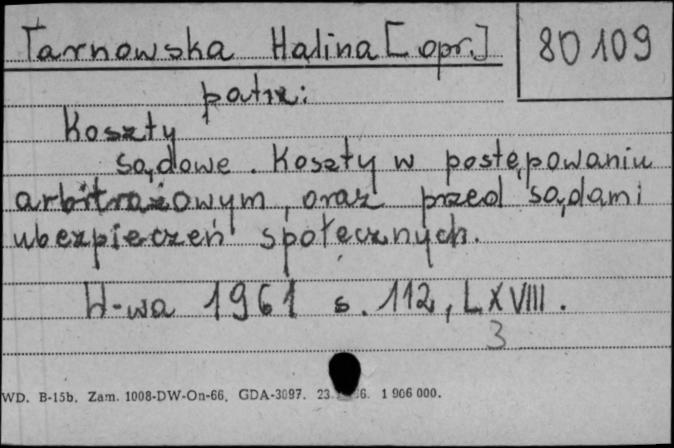 Tarnowska Halina [opr.]
80109
patrz:
Koszty
sądowe. Koszty w postępowaniu
arbitrażowym, oraz przed sądami
ubezpieczeń społecznych.
W-wa 1961 s. 112, LXVIII.
3
WD. B-15b. Zam. 1008-DW-On-66. GDA-3097. 23. 6. 1 906 000.